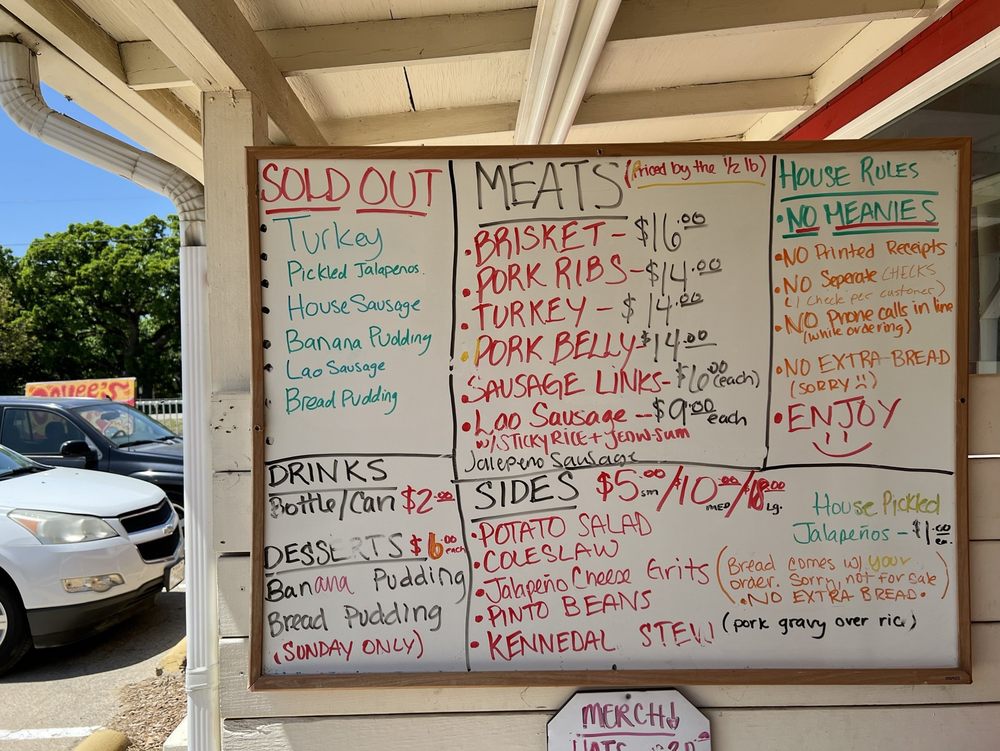 SOLD OUT
Turkey
Pickled Jalapenos.
House Sausage
Banana Pudding
Lao Sausage
Bread Pudding
DRINKS
Bottle/Can $2.00
DESSERTS $6.00 each
Banana Pudding
Bread Pudding
(SUNDAY ONLY)
MEATS (Priced by the 1/2 lb)
•BRISKET - $16.00
•PORK RIBS - $14.00
•TURKEY - $14.00
•PORK BELLY $14.00
•SAUSAGE LINKS - $6.00 (each)
•Lao Sausage - $9.00 each
w/ STICKY RICE + JEOW-SUM
Jalepeno Sausage
SIDES $5.00 sm / $10.00 MED / $18.00 Lg.
•POTATO SALAD
•COLESLAW
•Jalapeño Cheese Grits
•PINTO BEANS
•KENNEDAL STEW (pork gravy over rice)
House Pickled
Jalapeños - $1.00 ea.
(Bread comes w/ your
order. Sorry, not for sale
•NO EXTRA BREAD.)
HOUSE RULES
•NO MEANIES
•NO Printed Receipts
•NO Seperate CHECKS
(1 check per customer)
•NO Phone calls in line
(while ordering)
•NO EXTRA BREAD
(SORRY :))
•ENJOY
MERCH
HATS